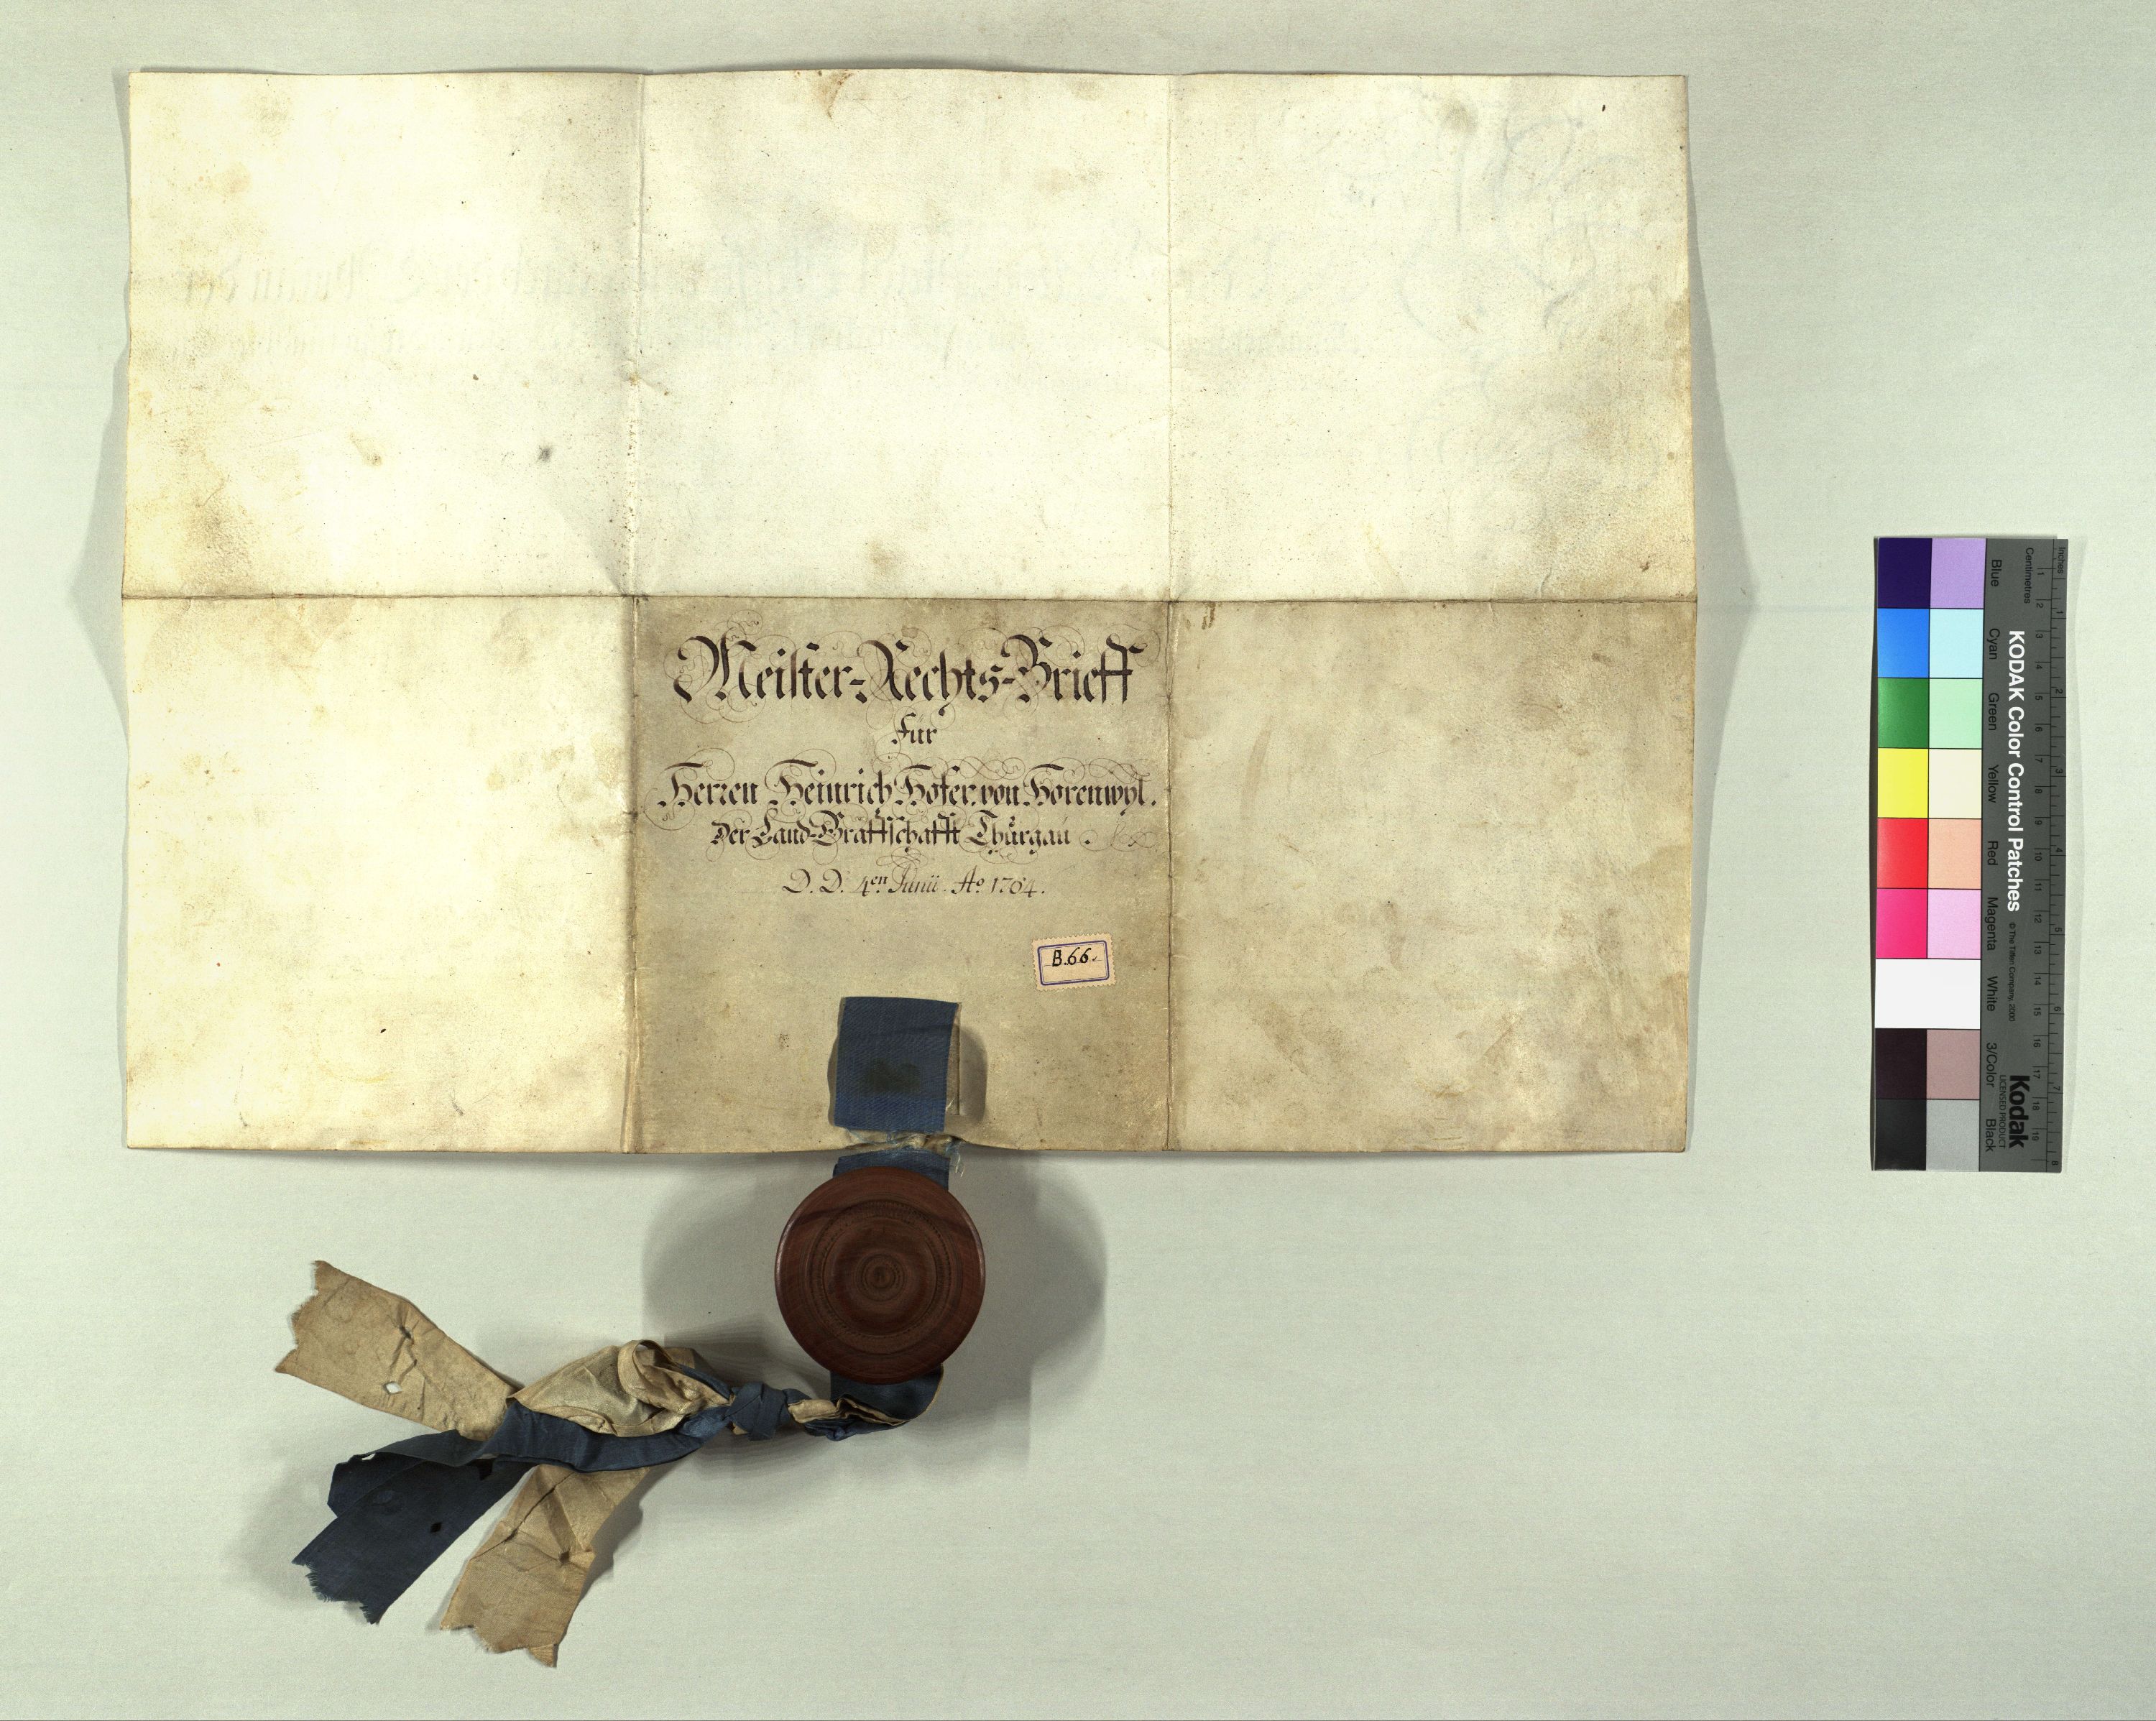 Meister-Rechts-Brieff
Für
Herren Heinrich Hofer, von Horenwyl.
Der Land-Graffschafft Thürgaü.
D. D. 4en Junii. Ao 1764.
B.66.
KODAK Color Control Patches
© The Tiffen Company, 2000
Kodak
LICENSED PRODUCT
Blue Cyan Green Yellow Red Magenta White 3/Color Black
Inches 1 2 3 4 5 6 7 8
Centimetres 1 2 3 4 5 6 7 8 9 10 11 12 13 14 15 16 17 18 19